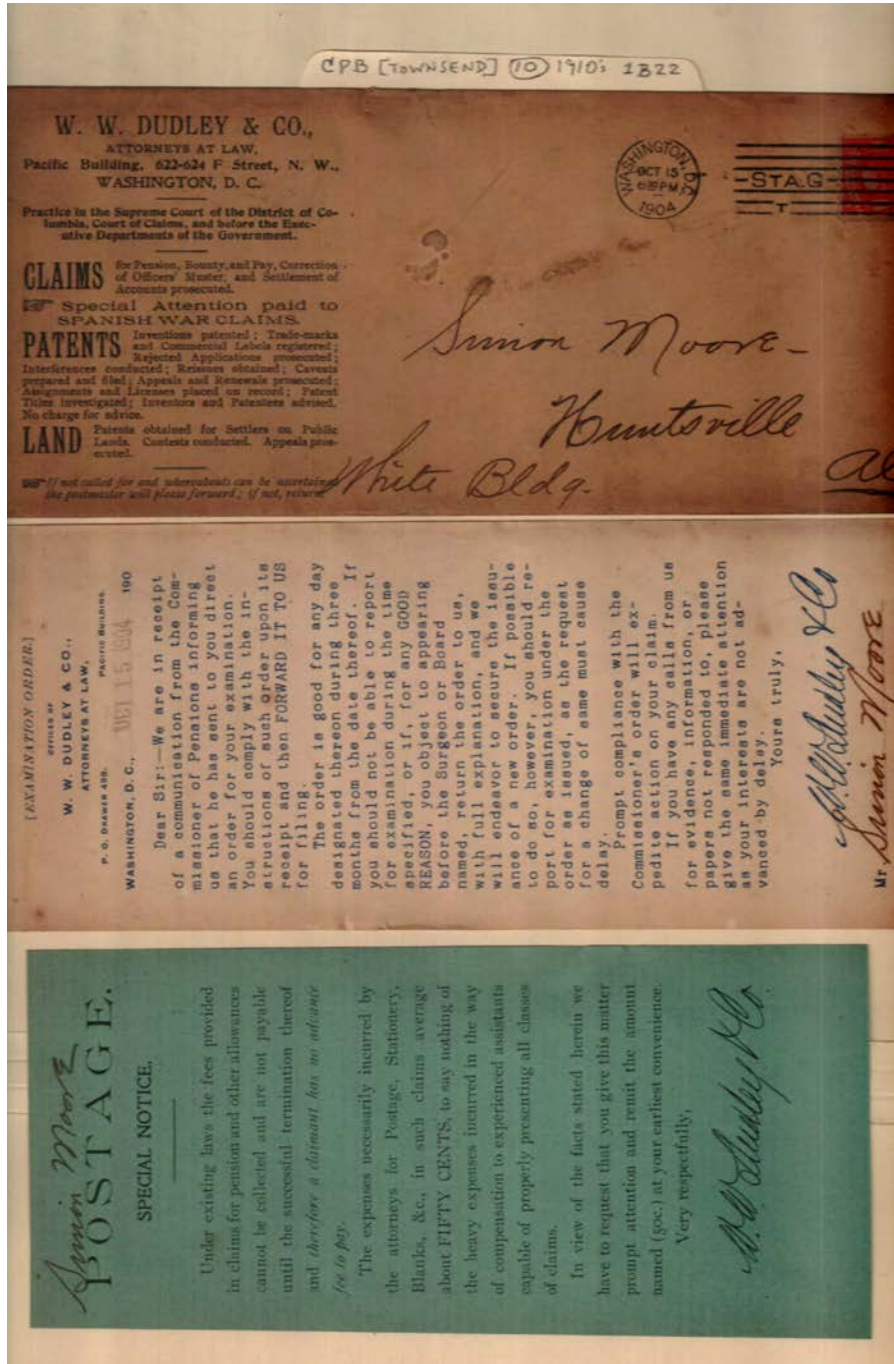 CPB [TOWNSEND] (10) 1910's 1B22
W. W. DUDLEY & CO.,
ATTORNEYS AT LAW,
Pacific Building, 622-624 F Street, N. W.,
WASHINGTON, D. C.
Practice in the Supreme Court of the District of Co-
lumbia, Court of Claims, and before the Exec-
utive Departments of the Government.
CLAIMS for Pension, Bounty, and Pay, Correction
of Officers' Muster, and Settlement of
Accounts prosecuted.
☞ Special Attention paid to
SPANISH WAR CLAIMS.
PATENTS Inventions patented; Trade-marks
and Commercial Labels registered;
Rejected Applications prosecuted;
Interferences conducted; Reissues obtained; Caveats
prepared and filed; Appeals and Renewals prosecuted;
Assignments and Licenses placed on record; Patent
Titles investigated; Inventors and Patentees advised.
No charge for advice.
LAND Patents obtained for Settlers on Public
Lands. Contests conducted. Appeals pros-
ecuted.
☞ If not called for and whereabouts can be ascertained
the postmaster will please forward; if not, return
WASHINGTON, D.C.
OCT 15
PM
1904
STA.G
T
Simon Moore-
Huntsville
White Bldg.
[EXAMINATION ORDER.]
OFFICES OF
W. W. DUDLEY & CO.,
ATTORNEYS AT LAW,
P. O. DRAWER 490. PACIFIC BUILDING.
WASHINGTON, D. C., OCT 15 1904 190
Dear Sir:-We are in receipt
of a communication from the Com-
missioner of Pensions informing
us that he has sent to you direct
an order for your examination.
You should comply with the in-
structions of such order upon its
receipt and then FORWARD IT TO US
for filing.
The order is good for any day
designated thereon during three
months from the date thereof. If
you should not be able to report
for examination during the time
specified, or if, for any GOOD
REASON, you object to appearing
before the Surgeon or Board
named, return the order to us,
with full explanation, and we
will endeavor to secure the issu-
ance of a new order. If possible
to do so, however, you should re-
port for examination under the
order as issued, as the request
for a change of same must cause
delay.
Prompt compliance with the
Commissioner's order will ex-
pedite action on your claim.
If you have any calls from us
for evidence, information, or
papers not responded to, please
give the same immediate attention
as your interests are not ad-
vanced by delay.
Yours truly,
W.W. Dudley & Co
Mr Simon Moore
Simon Moore
POSTAGE.
SPECIAL NOTICE.
Under existing laws the fees provided
in claims for pension and other allowances
cannot be collected and are not payable
until the successful termination thereof
and therefore a claimant has no advance
fee to pay.
The expenses necessarily incurred by
the attorneys for Postage, Stationery,
Blanks, &c., in such claims average
about FIFTY CENTS, to say nothing of
the heavy expenses incurred in the way
of compensation to experienced assistants
capable of properly presenting all classes
of claims.
In view of the facts stated herein we
have to request that you give this matter
prompt attention and remit the amount
named (50c.) at your earliest convenience.
Very respectfully,
W.W. Dudley & Co.